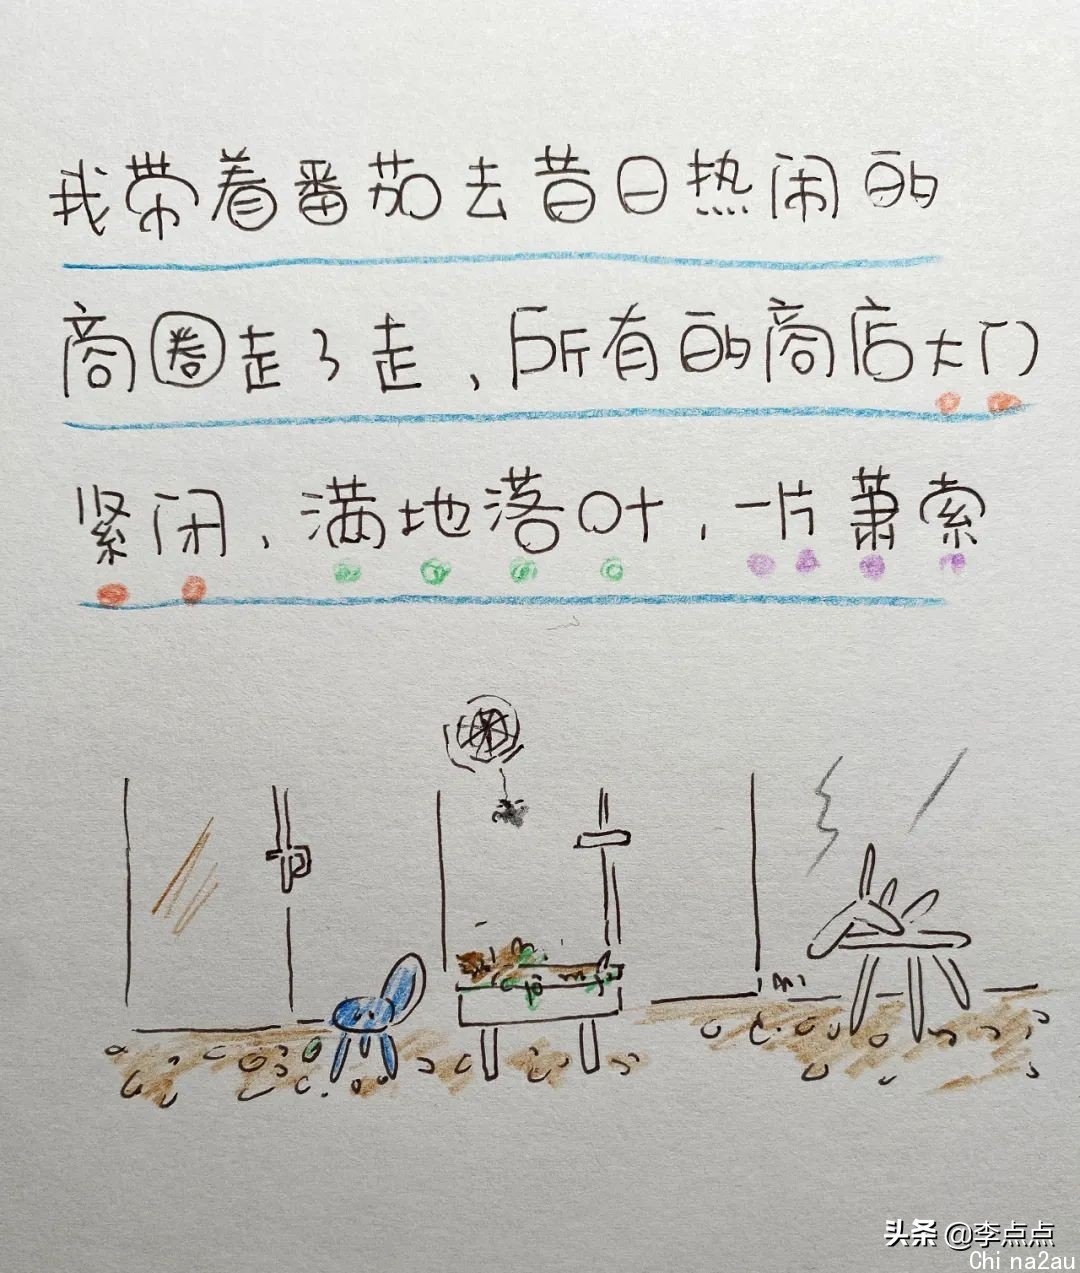 我带着番茄去昔日热闹的
商圈走了走,所有的商店大门
紧闭,满地落叶,一片萧索
头条@李点点
Chi na2au